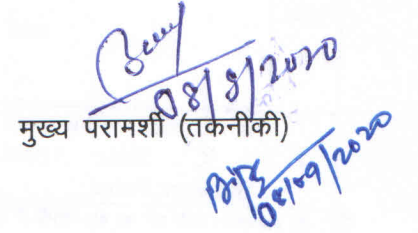 08/9/2020
मुख्य परामर्शी (तकनीकी)
08/09/2020